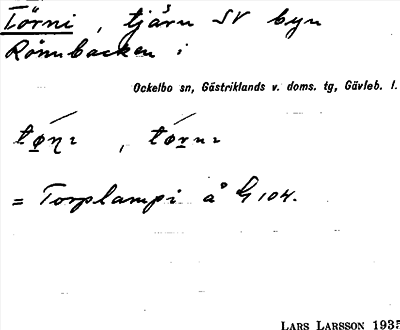 Törni, tjärn SV byn
Rönnbacken i
Ockelbo sn, Gästriklands v. doms. tg, Gävleb. l.
= Torplampi å G 104.
LARS LARSSON 1935